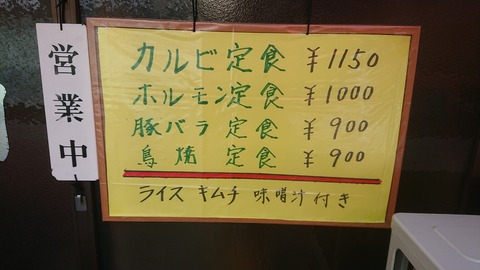 営業中
カルビ定食 ¥1150
ホルモン定食 ¥1000
豚バラ 定食 ¥900
鳥焼 定食 ¥900
ライス キムチ 味噌汁 付き